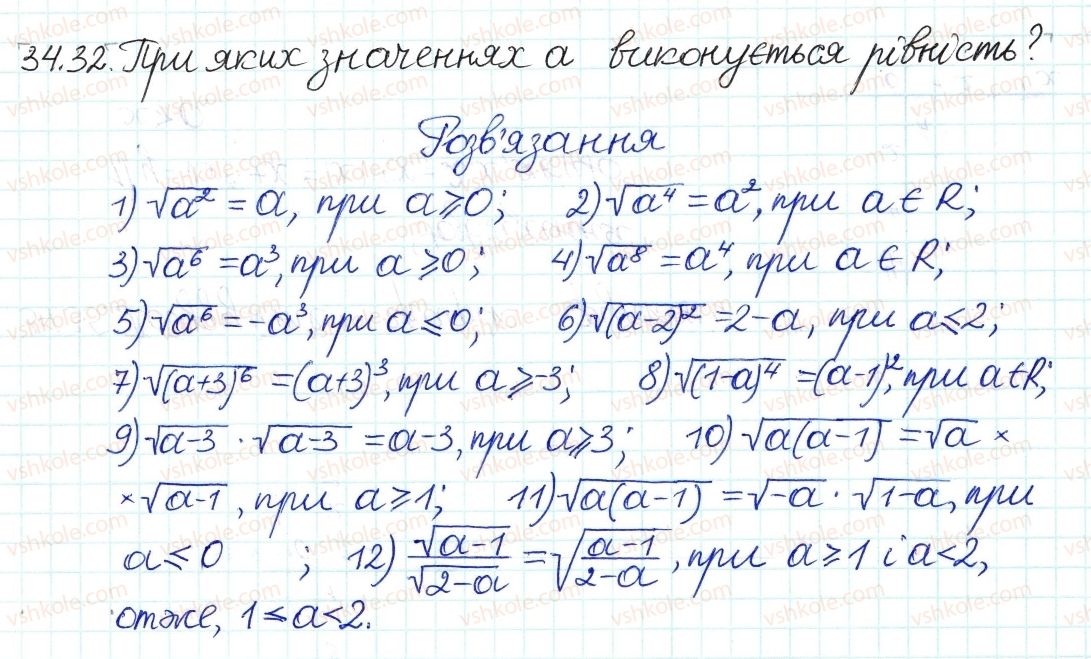 34.32. При яких значеннях a виконується рівність?
Розв'язання
1) √a² = a, при a ⩾ 0; 2) √a⁴ = a², при a ∈ R;
3) √a⁶ = a³, при a ⩾ 0; 4) √a⁸ = a⁴, при a ∈ R;
5) √a⁶ = -a³, при a ⩽ 0; 6) √(a-2)² = 2-a, при a ⩽ 2;
7) √(a+3)⁶ = (a+3)³, при a ⩾ -3; 8) √(1-a)⁴ = (a-1)², при a ∈ R;
9) √a-3 · √a-3 = a-3, при a ⩾ 3; 10) √a(a-1) = √a ×
× √a-1, при a ⩾ 1; 11) √a(a-1) = √-a · √1-a, при
a ⩽ 0 ; 12) √a-1/√2-a = √(a-1/2-a), при a ⩾ 1 і a < 2,
отже, 1 ⩽ a < 2.